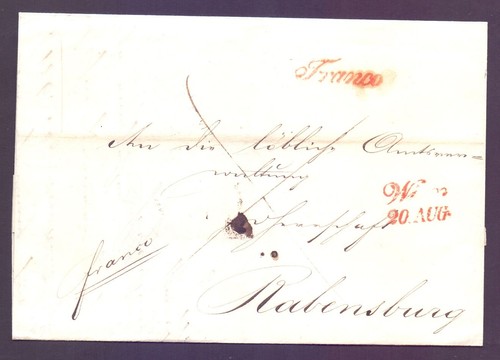 Franco
An die löbliche Amtsver-
waltung
Wien
20. AUG
Herrschaft
franco
Rabensburg